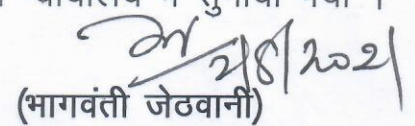 न्यायालय में सुनाया गया ।
2/8/2021
(भागवंती जेठवानी)